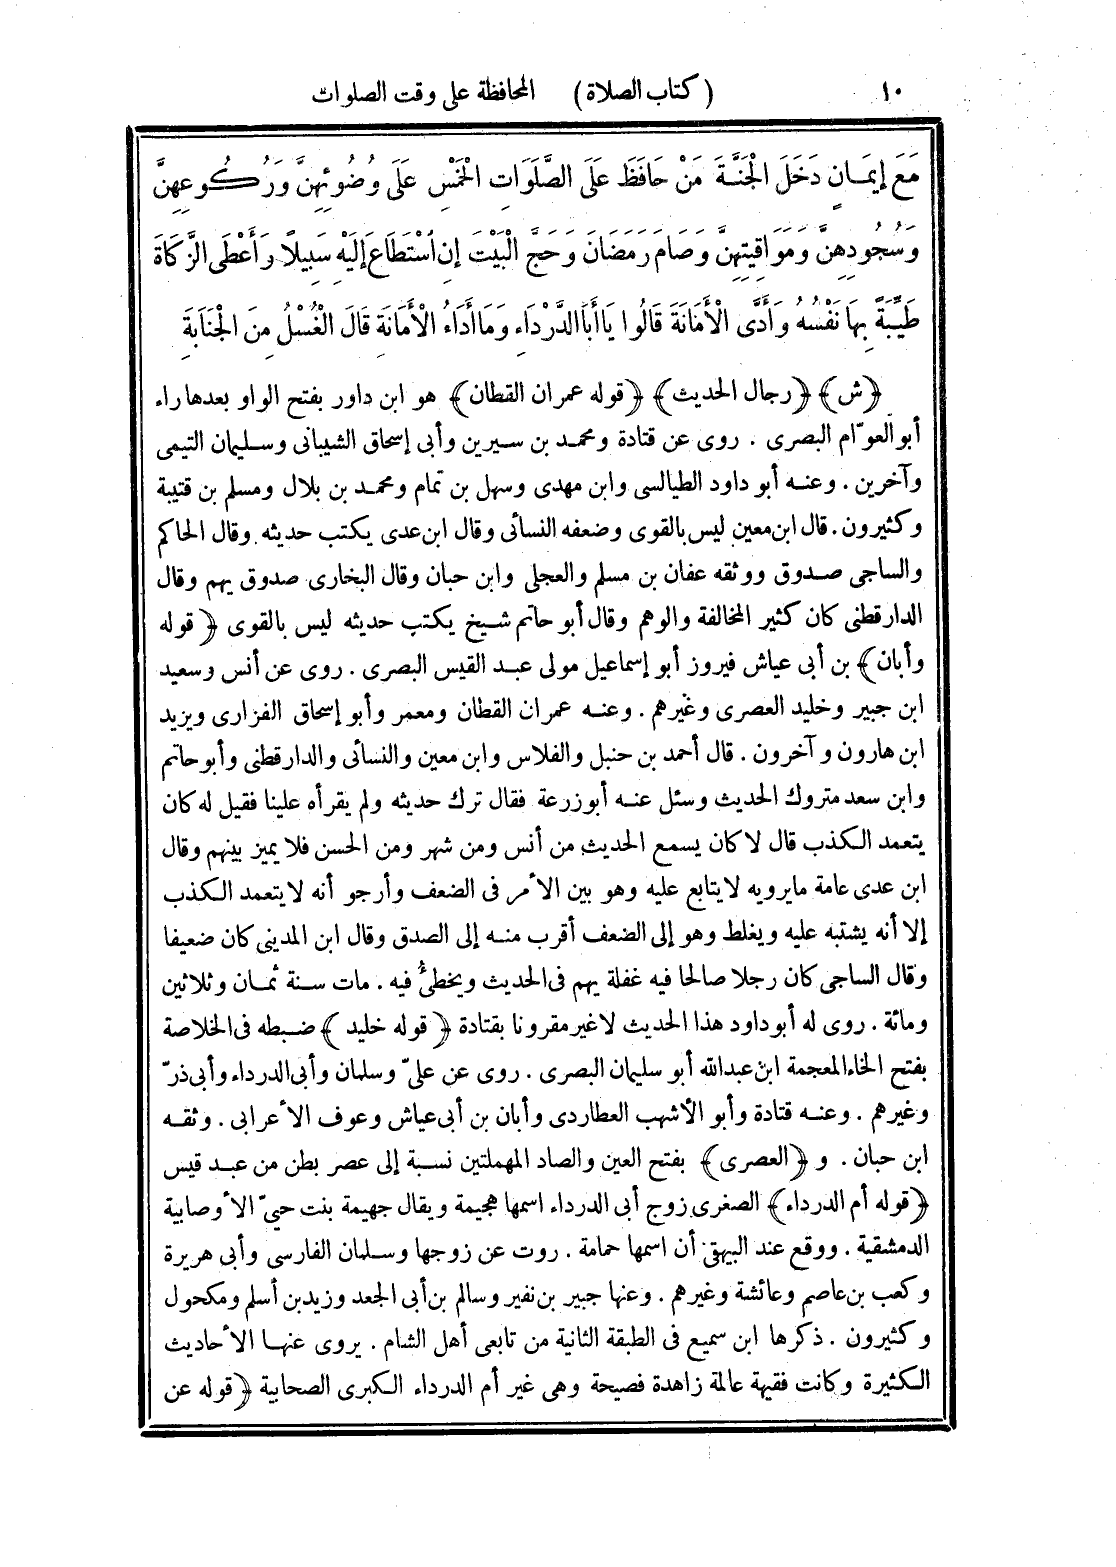 ١٠ (كتاب الصلاة) المحافظة على وقت الصلوات
مَعَ إِيمَانٍ دَخَلَ الْجَنَّةَ مَنْ حَافَظَ عَلَى الصَّلَوَاتِ الْخَمْسِ عَلَى وُضُوئِهِنَّ وَرُكُوعِهِنَّ
وَسُجُودِهِنَّ وَمَوَاقِيتِهِنَّ وَصَامَ رَمَضَانَ وَحَجَّ الْبَيْتَ إِنِ اسْتَطَاعَ إِلَيْهِ سَبِيلًا وَأَعْطَى الزَّكَاةَ
طَيِّبَةً بِهَا نَفْسُهُ وَأَدَّى الْأَمَانَةَ قَالُوا يَا أَبَا الدَّرْدَاءِ وَمَا أَدَاءُ الْأَمَانَةِ قَالَ الْغُسْلُ مِنَ الْجَنَابَةِ
﴿ش﴾ ﴿رجال الحديث﴾ ﴿قوله عمران القطان﴾ هو ابن داور بفتح الواو بعدها راء
أبو العوّام البصرى . روى عن قتادة ومحمد بن سيرين وأبى إسحاق الشيبانى وسليمان التيمى
وآخرين . وعنه أبو داود الطيالسى وابن مهدى وسهل بن تمام ومحمد بن بلال ومسلم بن قتيبة
وكثيرون . قال ابن معين ليس بالقوى وضعفه النسائى وقال ابن عدى يكتب حديثه وقال الحاكم
والساجى صدوق ووثقه عفان بن مسلم والعجلى وابن حبان وقال البخارى صدوق يهم وقال
الدارقطنى كان كثير المخالفة والوهم وقال أبو حاتم شيخ يكتب حديثه ليس بالقوى ﴿قوله
وأبان﴾ بن أبى عياش فيروز أبو إسماعيل مولى عبد القيس البصرى . روى عن أنس وسعيد
ابن جبير وخليد العصرى وغيرهم . وعنه عمران القطان ومعمر وأبو إسحاق الفزارى ويزيد
ابن هارون وآخرون . قال أحمد بن حنبل والفلاس وابن معين والنسائى والدارقطنى وأبو حاتم
وابن سعد متروك الحديث وسئل عنه أبو زرعة فقال ترك حديثه ولم يقرأه علينا فقيل له كان
يتعمد الكذب قال لا كان يسمع الحديث من أنس ومن شهر ومن الحسن فلا يميز بينهم وقال
ابن عدى عامة ما يرويه لا يتابع عليه وهو بين الأمر فى الضعف وأرجو أنه لا يتعمد الكذب
إلا أنه يشتبه عليه ويغلط وهو إلى الضعف أقرب منه إلى الصدق وقال ابن المدينى كان ضعيفا
وقال الساجى كان رجلا صالحا فيه غفلة يهم فى الحديث ويخطئ فيه . مات سنة ثمان وثلاثين
ومائة . روى له أبو داود هذا الحديث لا غير مقرونا بقتادة ﴿قوله خليد﴾ ضبطه فى الخلاصة
بفتح الخاء المعجمة ابن عبد الله أبو سليمان البصرى . روى عن علىّ وسلمان وأبى الدرداء وأبى ذرّ
وغيرهم . وعنه قتادة وأبو الأشهب العطاردى وأبان بن أبى عياش وعوف الأعرابى . وثقه
ابن حبان . و ﴿العصرى﴾ بفتح العين والصاد المهملتين نسبة إلى عصر بطن من عبد قيس
﴿قوله أم الدرداء﴾ الصغرى زوج أبى الدرداء اسمها هجيمة ويقال جهيمة بنت حيىّ الأوصابية
الدمشقية . ووقع عند البيهقى أن اسمها حمامة . روت عن زوجها وسلمان الفارسى وأبى هريرة
وكعب بن عاصم وعائشة وغيرهم . وعنها جبير بن نفير وسالم بن أبى الجعد وزيد بن أسلم ومكحول
وكثيرون . ذكرها ابن سميع فى الطبقة الثانية من تابعى أهل الشام . يروى عنها الأحاديث
الكثيرة وكانت فقيهة عالمة زاهدة فصيحة وهى غير أم الدرداء الكبرى الصحابية ﴿قوله عن